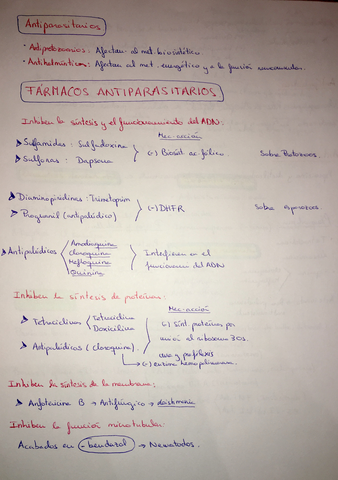 Antiparasitarios
· Antiprotozoarios: Afectan al met. biosintético
· Antihelmínticos: Afectan al met. energético y a la función neuromuscular.
FÁRMACOS ANTIPARASITARIOS
Inhiben la síntesis y el funcionamiento del ADN:
Mec. acción
➤ Sulfamidas: Sulfadoxina
➤ Sulfonas: Dapsona
(-) Biosínt. ac. fólico
Sobre Protozoos
➤ Diaminopiridinas: Trimetoprim
➤ Proguanil (antipalúdico)
(-) DHFR
Sobre esporozoos
➤ Antipalúdicos
Amodiaquina
Cloroquina
Mefloquina
Quinina
Interfieren en el
funcionam. del ADN
Inhiben la síntesis de proteínas:
Mec. acción
➤ Tetraciclinas
Tetraciclina
Doxiciclina
(-) Sínt. proteínas por
unión al ribosoma 30S.
➤ Antipalúdicos (Cloroquina).
cura y profilaxis
→ (-) enzima hemopolimerasa.
Inhiben la síntesis de la membrana:
➤ Anfotericina B → Antifúngico → leishmania
Inhiben la función microtubular:
Acabados en -bendazol → Nematodos.